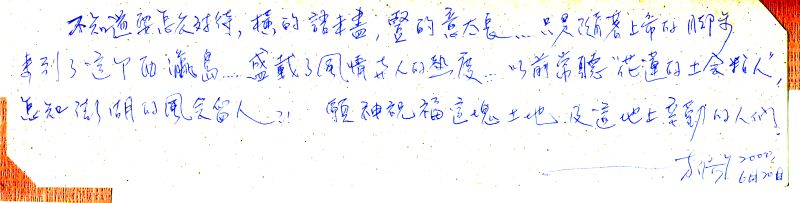 不知道要怎么对待，橫的諸未盡，豎的意太長...只是隨著上帝的脚步
來到了這个西瀛島...盛載了風情與人的熱度...以前常聽“花蓮的土会粘人”，
怎知澎湖的風会留人..?! 願神祝福這塊土地.及這地上辛勤的人們。
2002.
6月20日